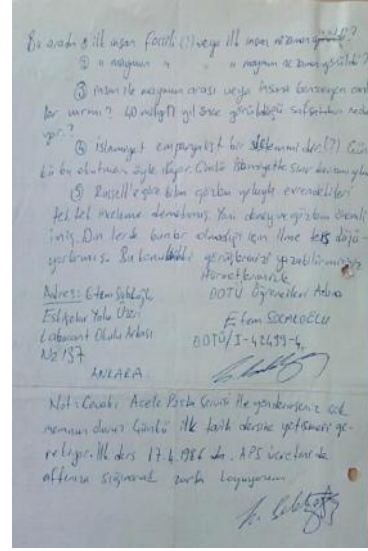 Bu arada ① ilk insan fosili (?) veya ilk insan ne zaman görüldü?
② " maymun " " " maymun ne zaman görüldü?
③ insan ile maymun arası veya insana benzeyen canlı
var mıdır? 40 milyon yıl önce görüldüğü
④ İslamiyet emperyalist bir sistem midir (?) Çün
kü bu okutman öyle diyor. Çünkü İslamiyette
⑤ Russell'e göre bilim gözlem yoluyla evrendekileri
tek tek inceleme demekmiş. Yani deney ve gözlem önemli
imiş. Din lerde bunlar olmadığı için ilme ters düşü
yorlarmış. Bu konudaki görüşlerinizi yazabilirmisiniz
Hürmetlerimle
ODTÜ Öğrencileri Adına
Adres: Etem
Eskişehir Yolu Üzeri
Laborant Okulu Arkası
No 137
ANKARA
Etem
ODTÜ/I-42499-4
Not: Cevabı Acele Posta Servisi ile gönderirseniz çok
memnun oluruz Çünkü ilk tarih dersine yetişmesi ge-
rekiyor. İlk ders 17.4.1986 da. APS ücretini de
affınıza sığınarak zarfa koyuyorum.